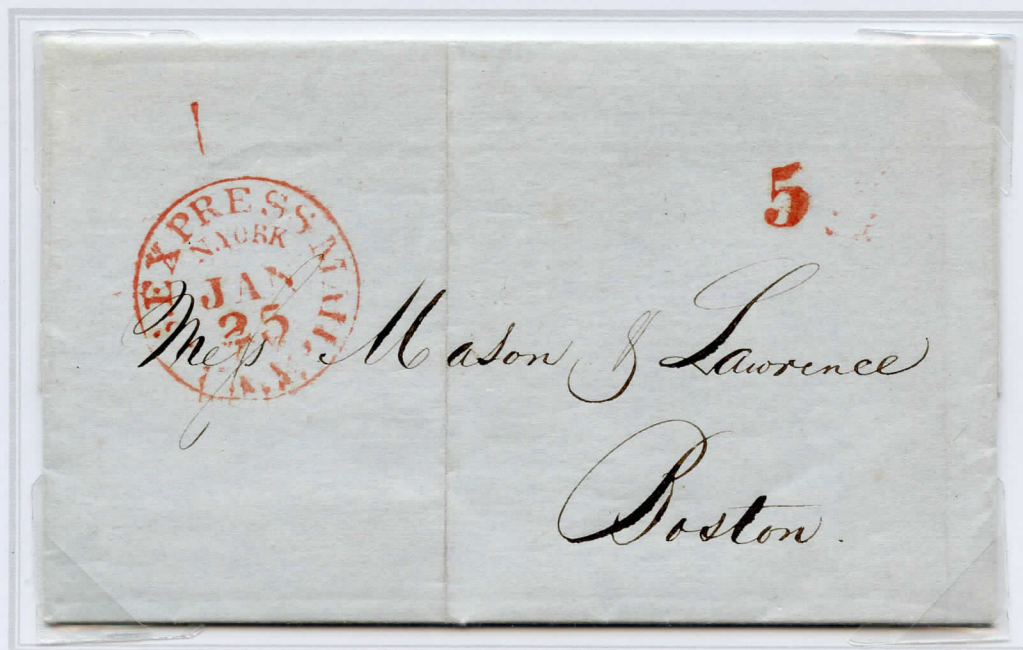 EXPRESS MAIL
N.YORK
JAN
25
N.Y.
5
Mess Mason & Lawrence
Boston.